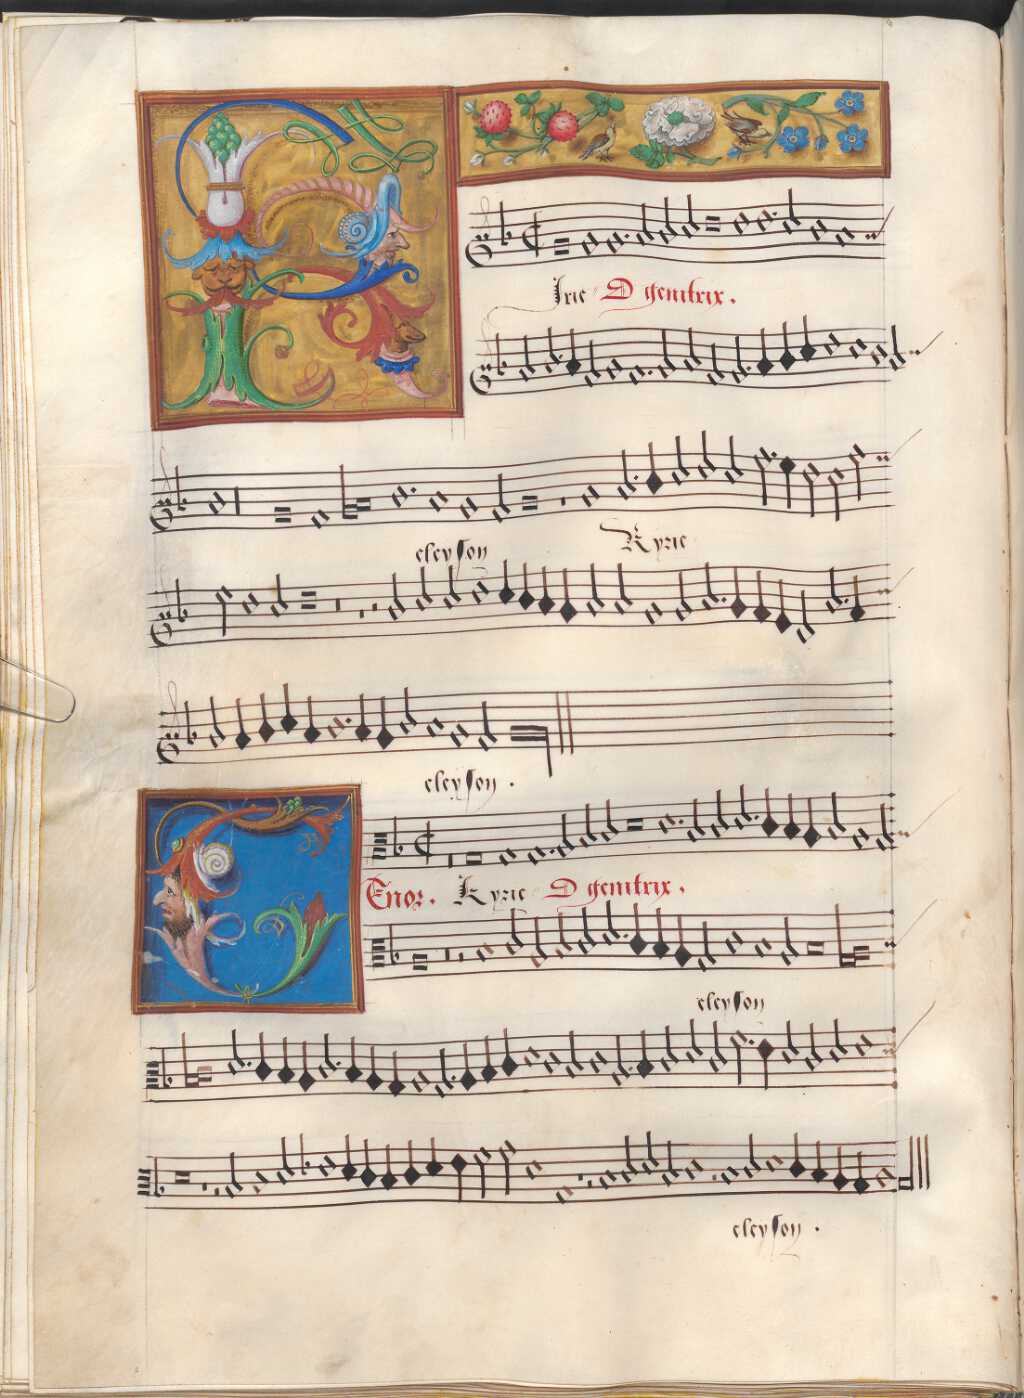 Kirie O genitrix.
eleyson Kyrie
eleyson.
Tenor. Kyrie O genitrix.
eleyson
eleyson.